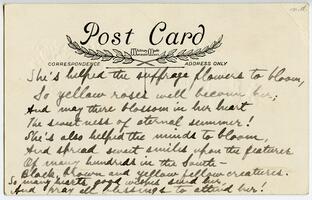 n.d.
Post Card
CORRESPONDENCE ADDRESS ONLY
She's helped the suffrage flowers to bloom,
So yellow roses well become her;
And may there blossom in her heart
The sweetness of eternal summer!
She's also helped the minds to bloom,
And spread sweet smiles upon the features
Of many hundreds in the South—
Black, brown and yellow fellow creatures.
So many hearts good wishes send her,
And I pray all blessings to attend her!